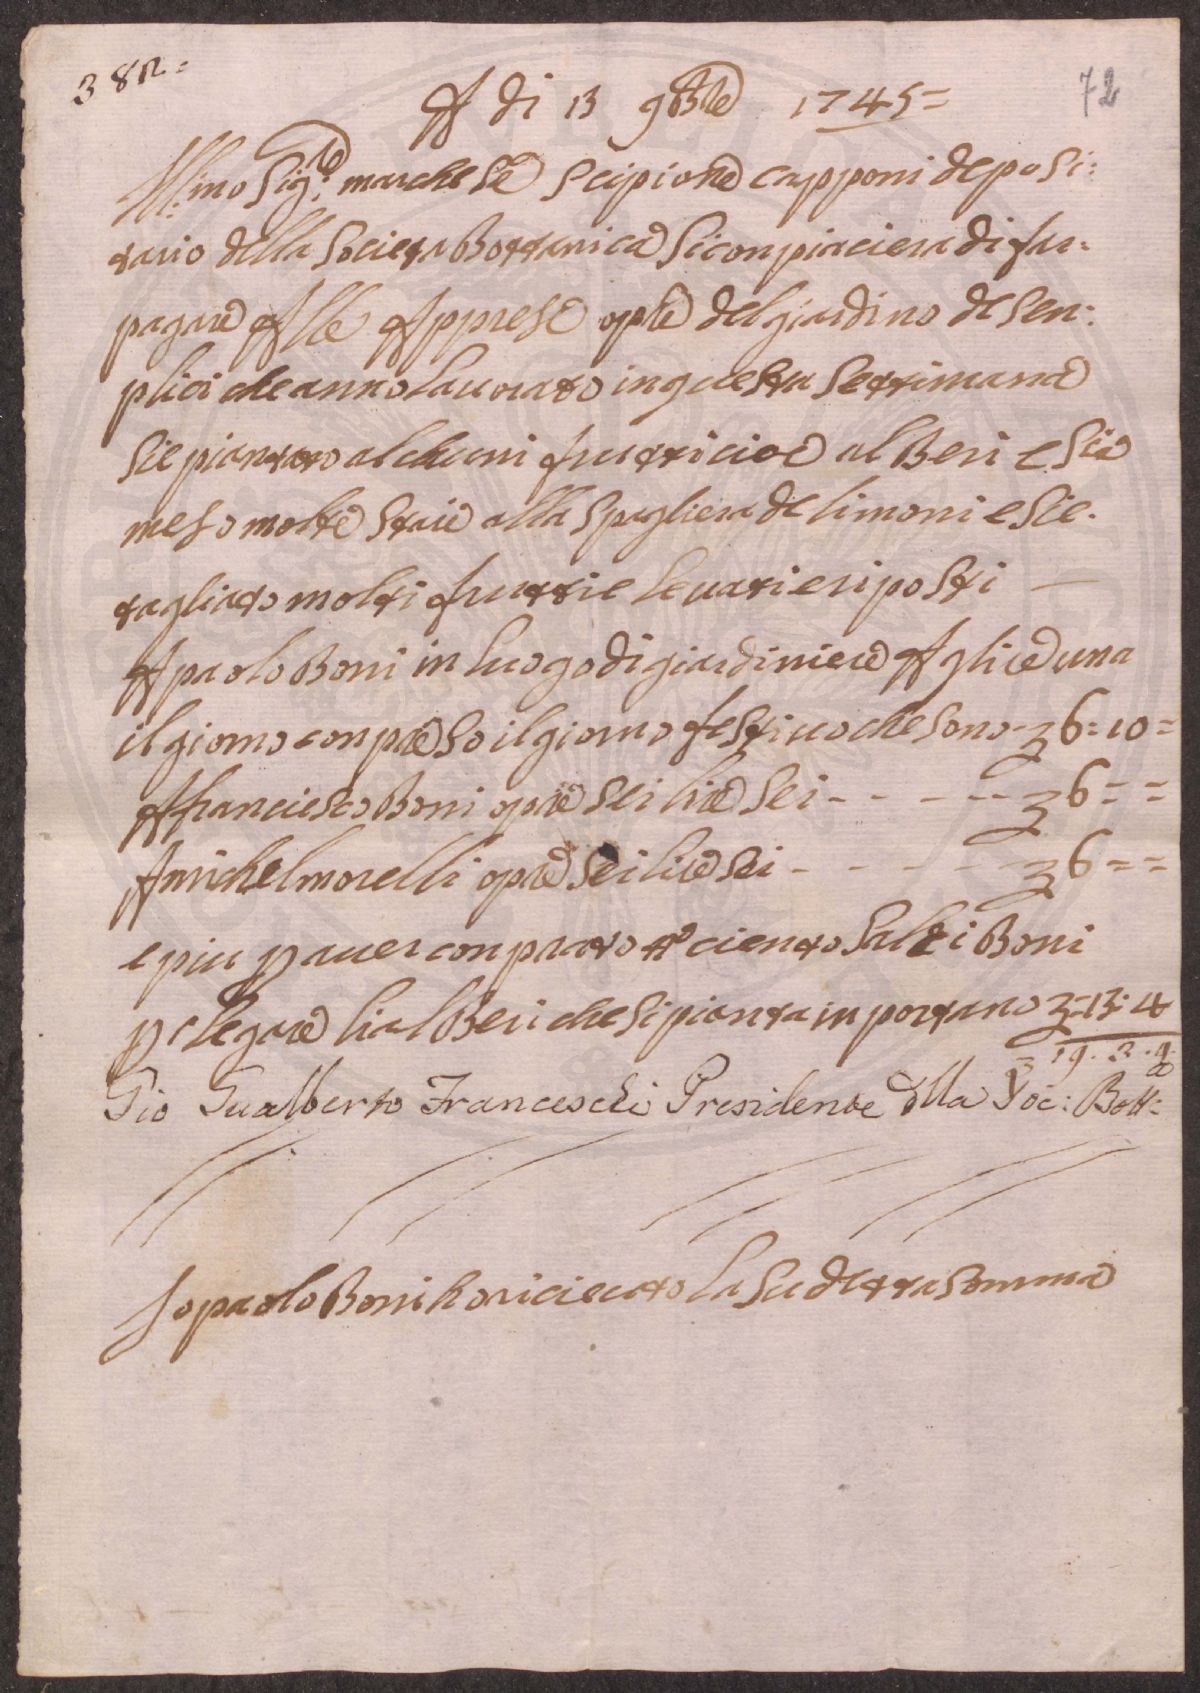 382=
72
A di 13 9bre 1745=
Ill:mo Sig:re marchese Scipione Capponi deposi:
tario della Societa Bottanica Si conpiaciera di far:
pagare Alle Apprese opre del giardino de Sen:
plici che anno lavorato in questa Settimana
Sie piantato alchuni frutti cioe alberi e Sie
meso molte Staie alla Spagliera de limoni e Sie.
tagliato molti frutti e levati e riposti
A paolo Boni in luogo di giardiniere A lire una
il giorno conpreso il giorno festivo che sono - 6=10=
A franciesco Boni opre sei lire sei - - - - - 6= =
A michel morelli opre sei lire sei - - - - - 6= =
e piu p aver conprato no ciento Salci Boni
p legare li alberi che si pianta inportano -.13.4
19. 3. 4
Gio Gualberto Franceschi Presidente della Soc: Bott:
Io paolo Boni ho riceuto la su detta somma